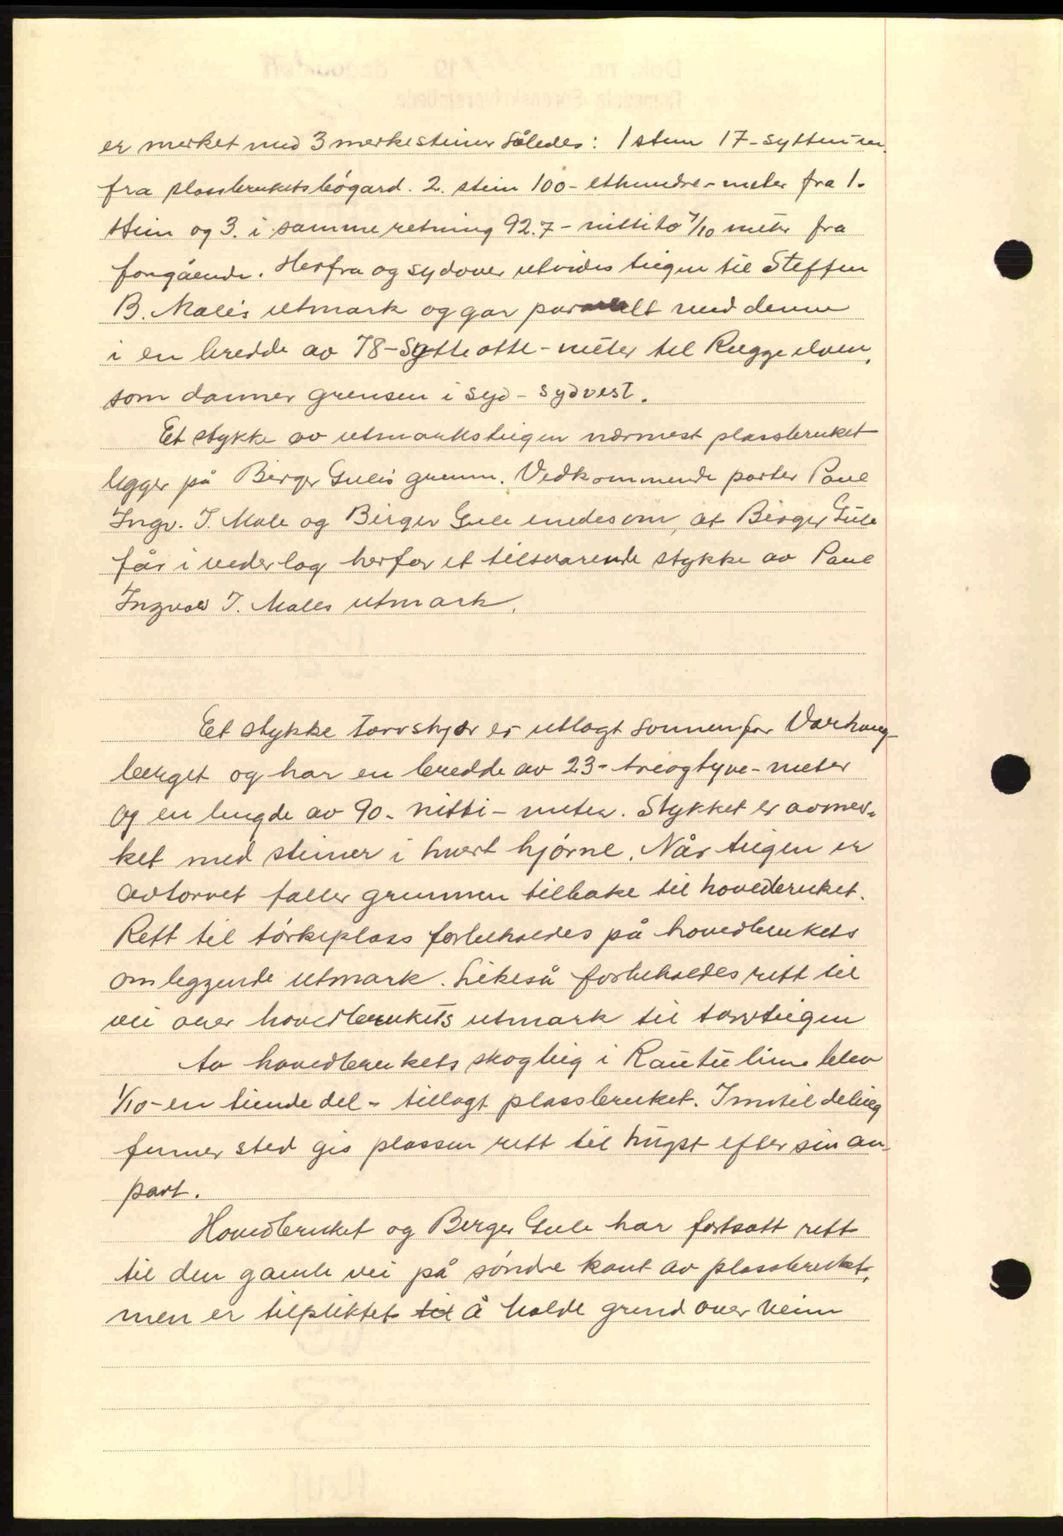 er merket med 3 merkesteiner således: 1 stein 17-sytten m.
fra plassbruketsbøgard. 2. stein 100-ethundre-meter fra 1.
stein og 3. i samme retning 92.7-nittito 7/10 meter fra
forgående. Herfra og sydover utvides teigen til Steffen
B. Males utmark og går paralelt med denne
i en bredde av 78-sytti otte-meter til elven,
som danner grensen i syd-sydvest.
Et stykke av utmarksteigen nærmest plassbruket
ligger på Berger Gules grunn. Vedkommende parter Paul
Ingv. T. Male og Birger Gule enedes om, at Birger Gule
får i vederlag herfor et tilsvarende stykke av Paul
Ingvald T. Males utmark.
Et stykke torvskjær er utlagt sønnenfor Varhaug-
berget og har en bredde av 23-treogtyve-meter
og en lengde av 90-nitti-meter. Stykket er avmer-
ket med steiner i hvert hjørne. Når teigen er
avtorvet faller grunnen tilbake til hovedbruket.
Rett til tørkeplass forbeholdes på hovedbrukets
omleggende utmark. Likeså forbeholdes rett til
vei over hovedbrukets utmark til torvteigen
Av hovedbrukets skogteig i blev
1/10-en tiende del-tillagt plassbruket. Inntil deling
finner sted gis plassen rett til hugst efter sin an-
part.
Hovedbruket og Berger Gule har fortsatt rett
til den gamle vei på søndre kant av plassbruket,
men er tilpliktet til å holde grind over veien